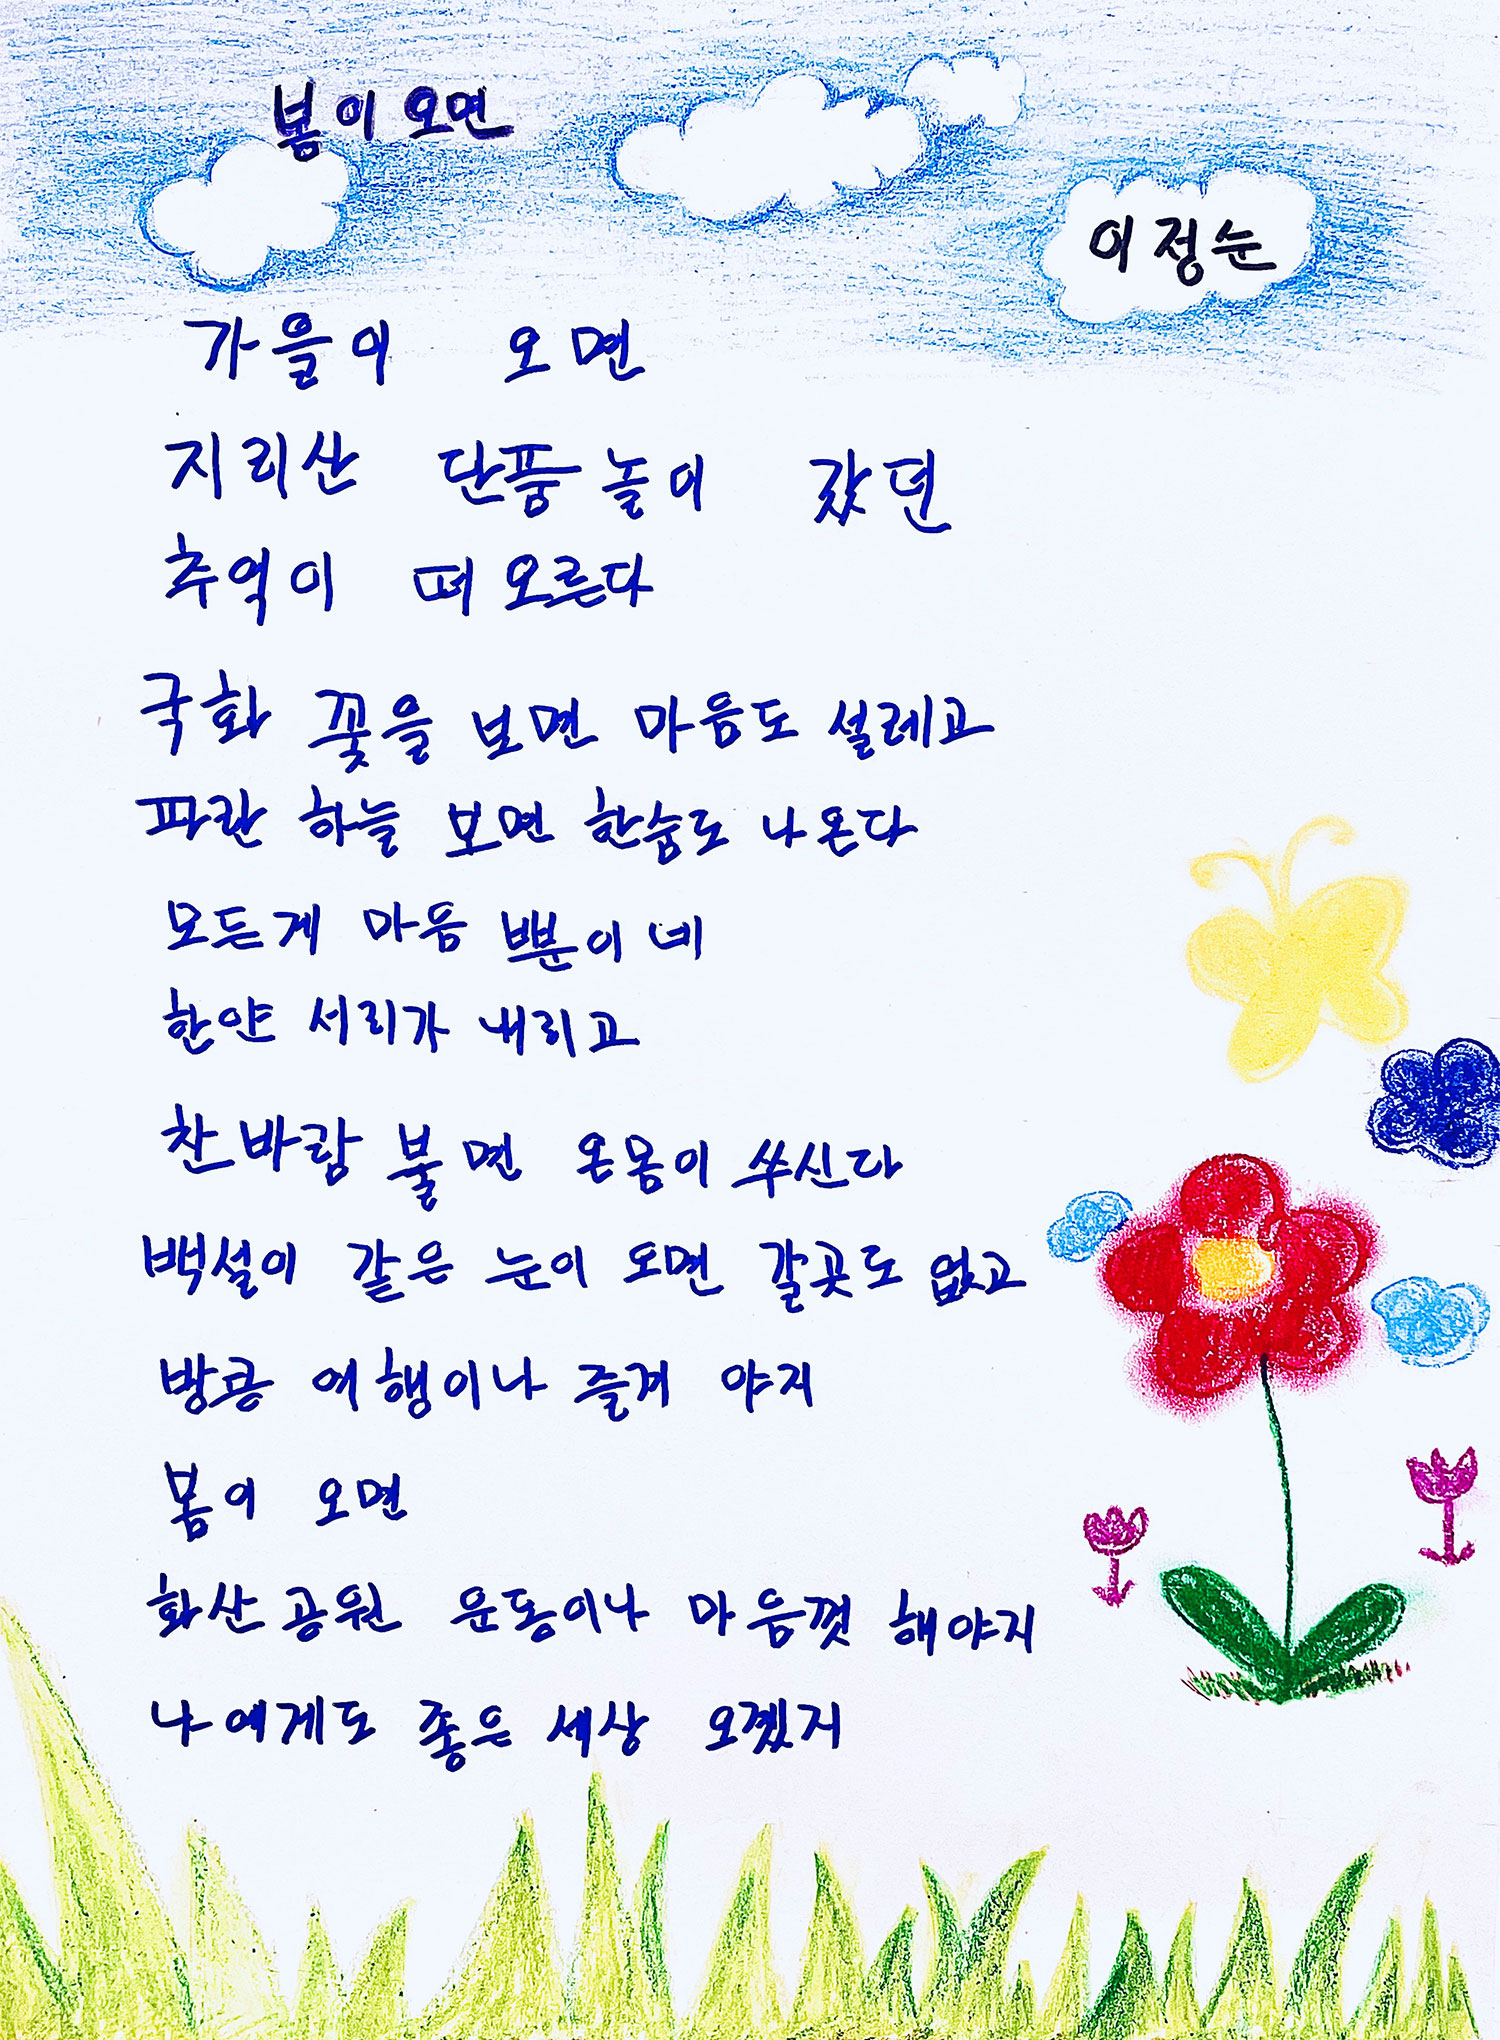 봄이 오면
이정순
가을이 오면
지리산 단풍놀이 갔던
추억이 떠오른다
국화 꽃을 보면 마음도 설레고
파란 하늘 보면 한숨도 나온다
모든게 마음 뿐이네
한얀 서리가 내리고
찬바람 불면 온몸이 쑤신다
백설이 같은 눈이 오면 갈곳도 없고
방콩 여행이나 즐겨 야지
봄이 오면
화산공원 운동이나 마음껏 해야지
나에게도 좋은 세상 오겠지